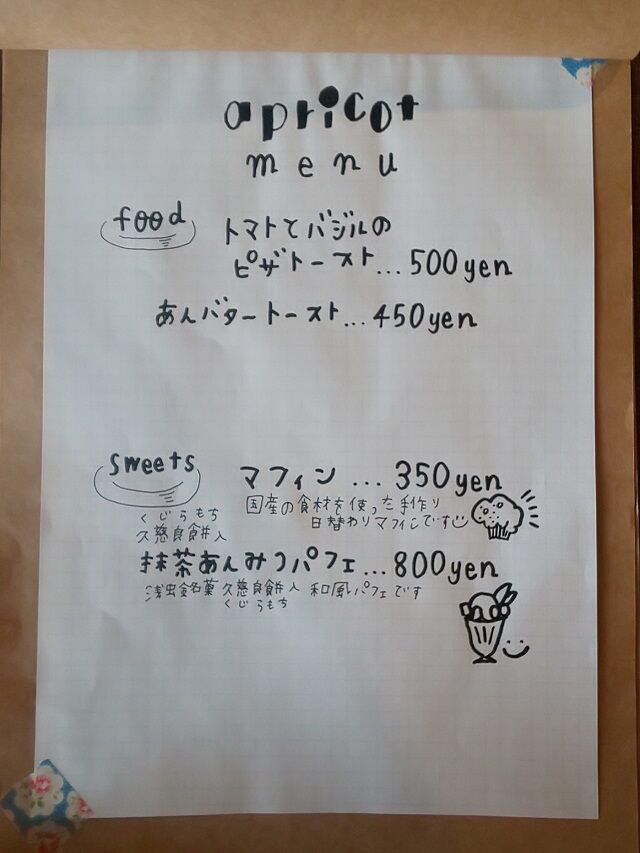 apricot
menu
food
トマトとバジルの
ピザトースト...500yen
あんバタートースト...450yen
sweets
マフィン...350yen
国産の食材を使った手作り
日替わりマフィンです
くじらもち
久慈良餅入
抹茶あんみつパフェ...800yen
浅虫銘菓 久慈良餅入 和風パフェです
くじらもち